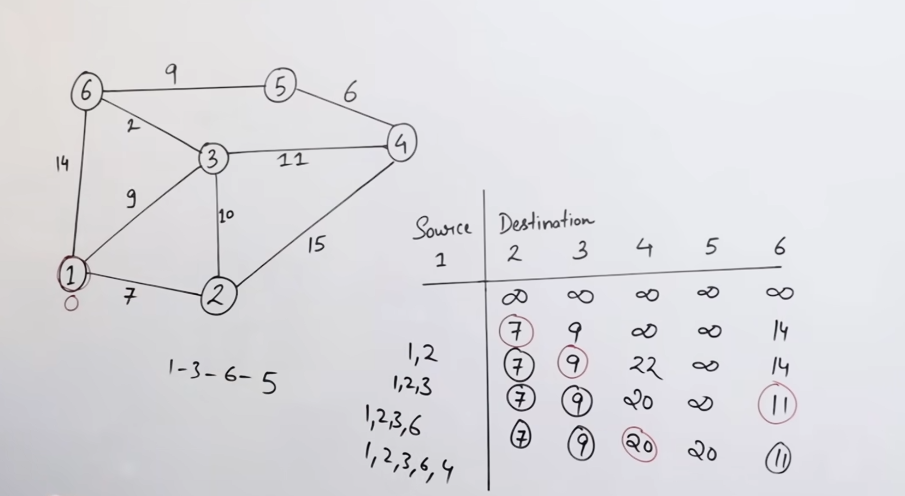 9
6
5
6
2
4
3
11
14
9
10
15
1
7
2
0
1-3-6-5
Source Destination
1 2 3 4 5 6
∞ ∞ ∞ ∞ ∞
7 9 ∞ ∞ 14
1,2 7 9 22 ∞ 14
1,2,3 7 9 20 ∞ 11
1,2,3,6 7 9 20 20 11
1,2,3,6,4